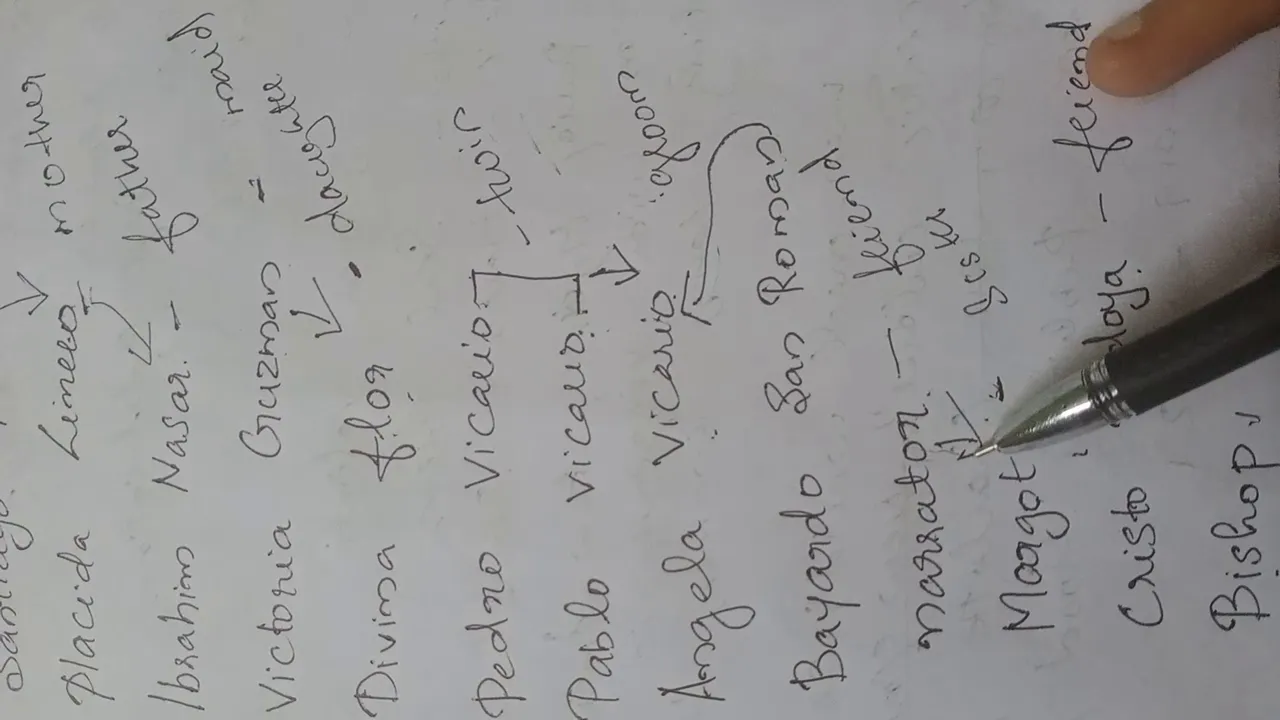 Santiago.
Placida Linero mother
Ibrahim Nasar - father
Victoria Guzman - maid
Divina flor daughter
Pedro Vicario - twin
Pablo vicario
Angela Vicario groom
Bayardo San Roman
narrator - friend
Margot - sister
Cristo doya - friend
Bishop,